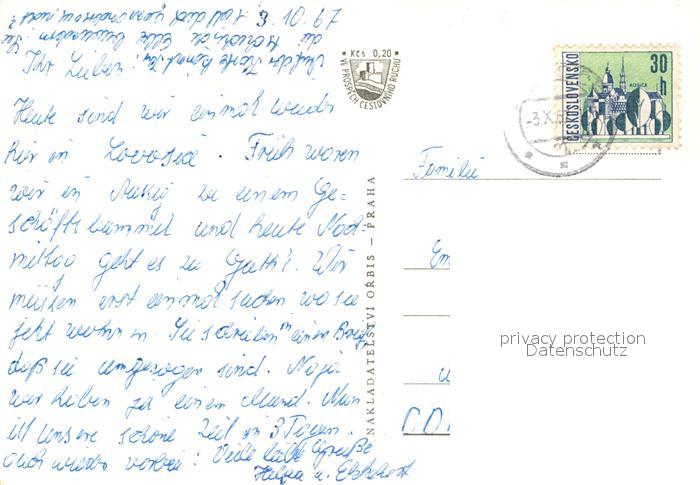 3.10.67
Ihr Lieben!
Heute sind wir einmal wieder
hier in Lovosice. Früh waren
wir in Aussig zu einem Ge=
schäftsbummel und heute Nach-
mittag geht es zu Gutti. Wir
müssen erst einmal suchen wo sie
jetzt wohnen. Sie schreiben in einem Brief,
daß sie umgezogen sind. Naja
wir haben ja einen Mund. Nun
ist unsere schöne Zeit in 3 Tagen
auch wieder vorbei! Viele liebe Grüße
Helga u. Ekkehard
Kčs 0,20
VE PROSPĚCH CESTOVNÍHO RUCHU
NAKLADATELSTVÍ ORBIS – PRAHA
ČESKOSLOVENSKO
30 h
KOŠICE
-3.X.6
Familie
Em
privacy protection
Datenschutz